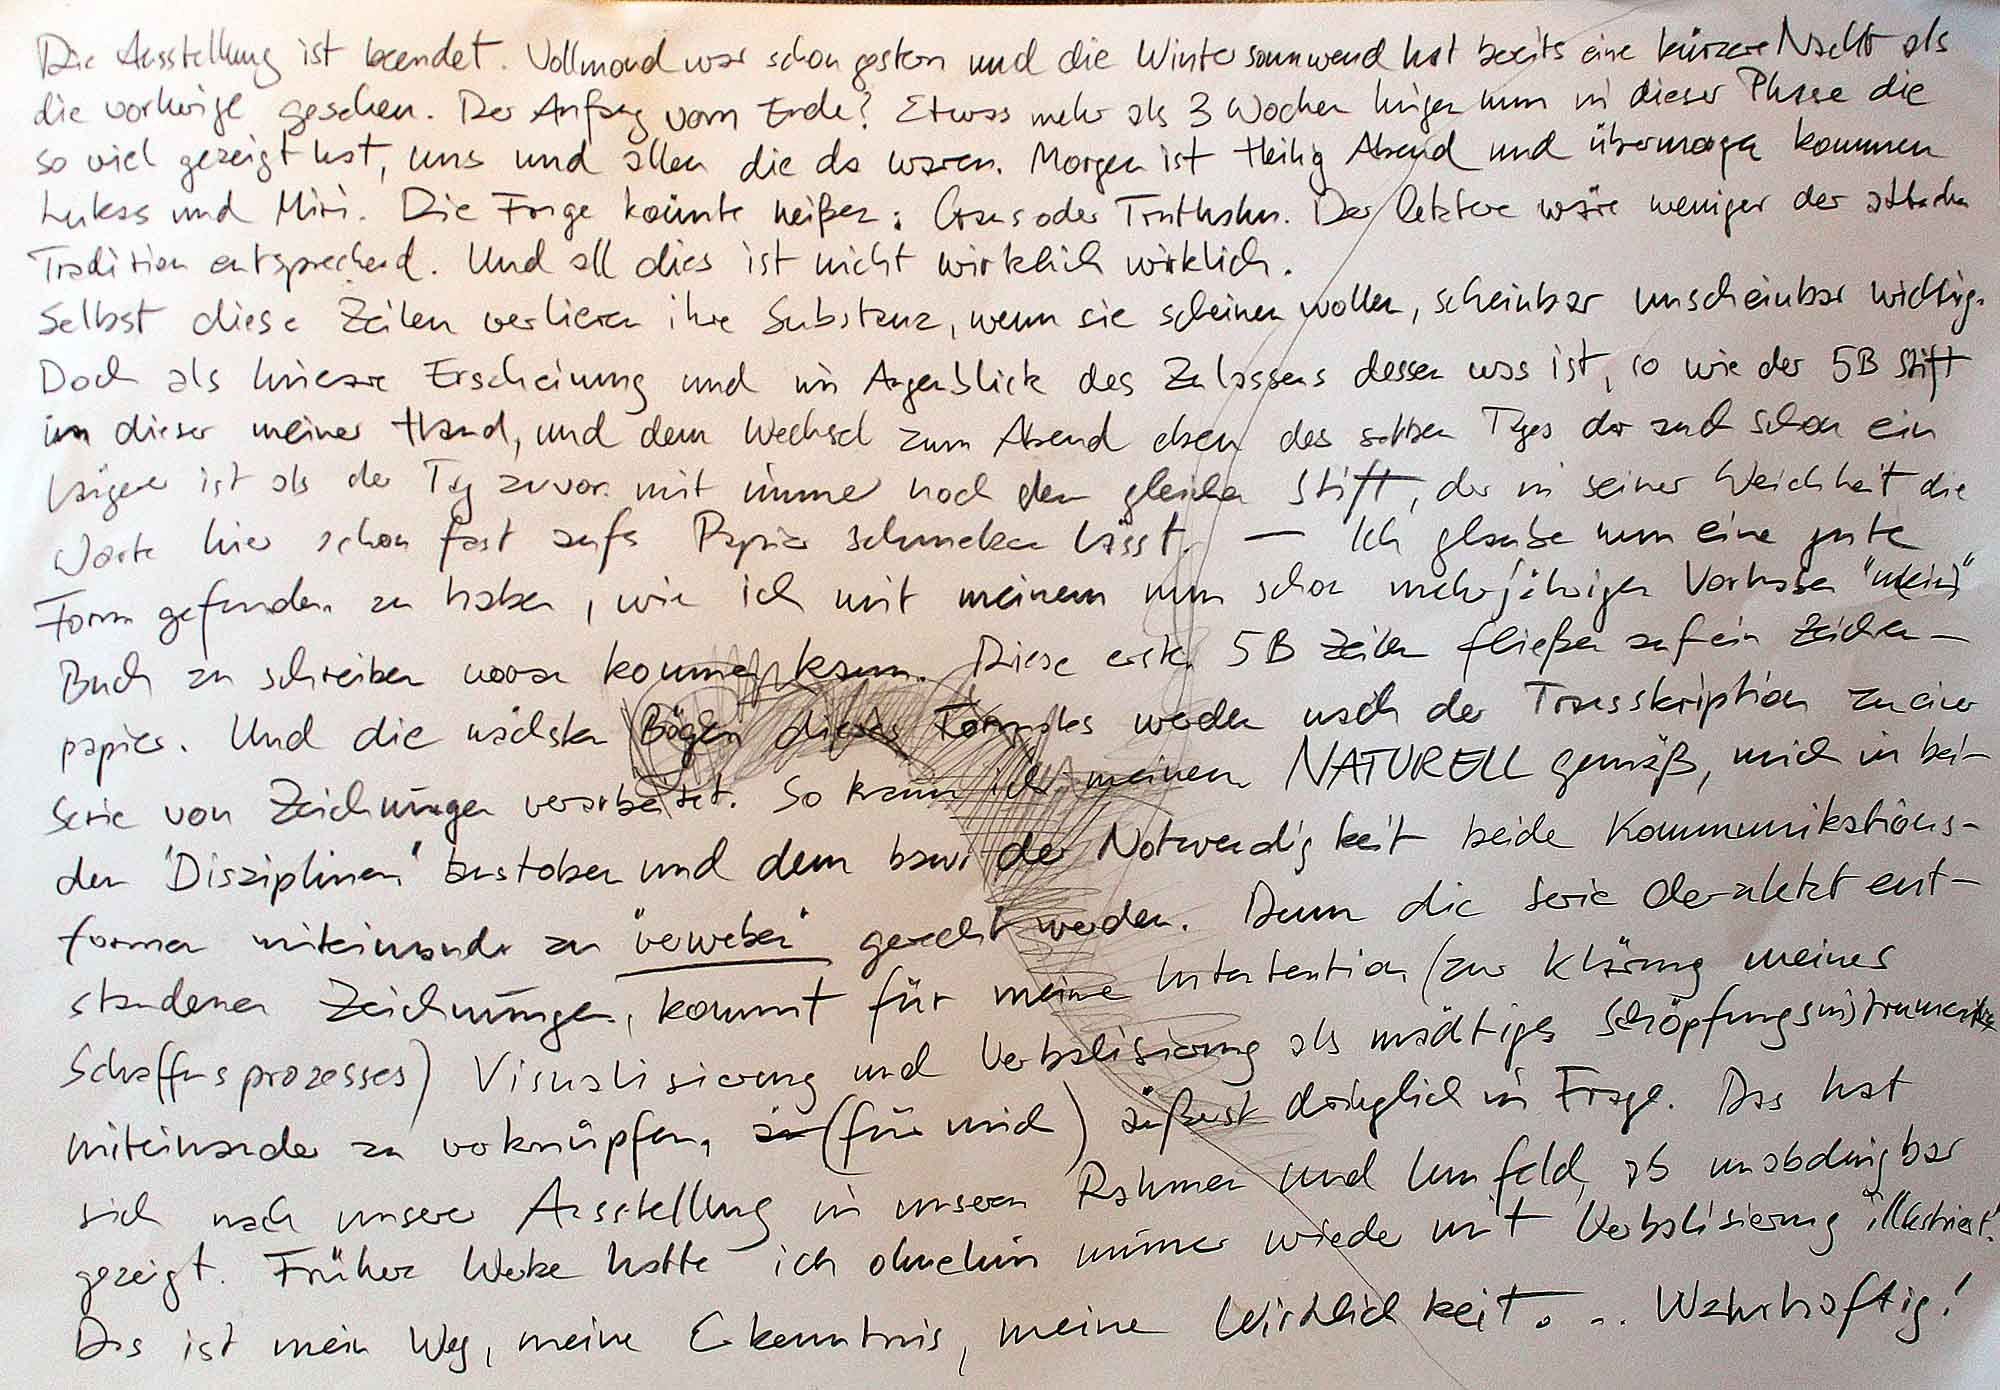 Die Ausstellung ist beendet. Vollmond war schon gestern und die Wintersonnwend hat bereits eine kürzere Nacht als
die vorherige gesehen. Der Anfang vom Ende? Etwas mehr als 3 Wochen hingen nun in dieser Phase die
so viel gezeigt hat, uns und allen die da waren. Morgen ist Heilig Abend und übermorgen kommen
Lukas und Miri. Die Frage könnte heißen: Gans oder Truthahn. Der letztere wäre weniger der
Tradition entsprechend. Und all dies ist nicht wirklich wirklich.
Selbst diese Zeilen verlieren ihre Substanz, wenn sie scheinen wollen, scheinbar unscheinbar wichtig.
Doch als lineare Erscheinung und im Augenblick des Zulassens dessen was ist, so wie der 5B Stift
in dieser meiner Hand, und dem Wechsel zum Abend eben des selben Tages der auch schon ein
längerer ist als der Tag zuvor. mit immer noch dem gleichen Stift, der in seiner Weichheit die
Worte hier schon fast aufs Papier schmelzen lässt. — Ich glaube nun eine gute
Form gefunden zu haben, wie ich mit meinem nun schon mehrjährigen Vorhaben "(m)ein"
Buch zu schreiben voran kommen kann. Diese ersten 5B Zeilen fließen auf ein Zeichen-
papier. Und die nächsten Bögen dieses Formates werden nach der Transskription zu einer
Serie von Zeichnungen verarbeitet. So kann ich meinem NATURELL gemäß, mich in bei-
den "Disziplinen" austoben und dem bzw. der Notwendigkeit beide Kommunikations-
formen miteinander zu "verweben" gerecht werden. Denn die Serie der zuletzt ent-
standenen Zeichnungen, kommt für meine Intention (zur Klärung meines
Schaffensprozesses) Visualisierung und Verbalisierung als mächtiges Schöpfungsinstrument
miteinander zu verknüpfen, (für mich) äußerst dringlich in Frage. Das hat
sich nach unserer Ausstellung in unserem Rahmen und Umfeld, als unabdingbar
gezeigt. Früher Werke hatte ich ohnehin immer wieder mit Verbalisierung illustriert!
Das ist mein Weg, meine Erkenntnis, meine Wirklichkeit. .. Wahrhaftig!